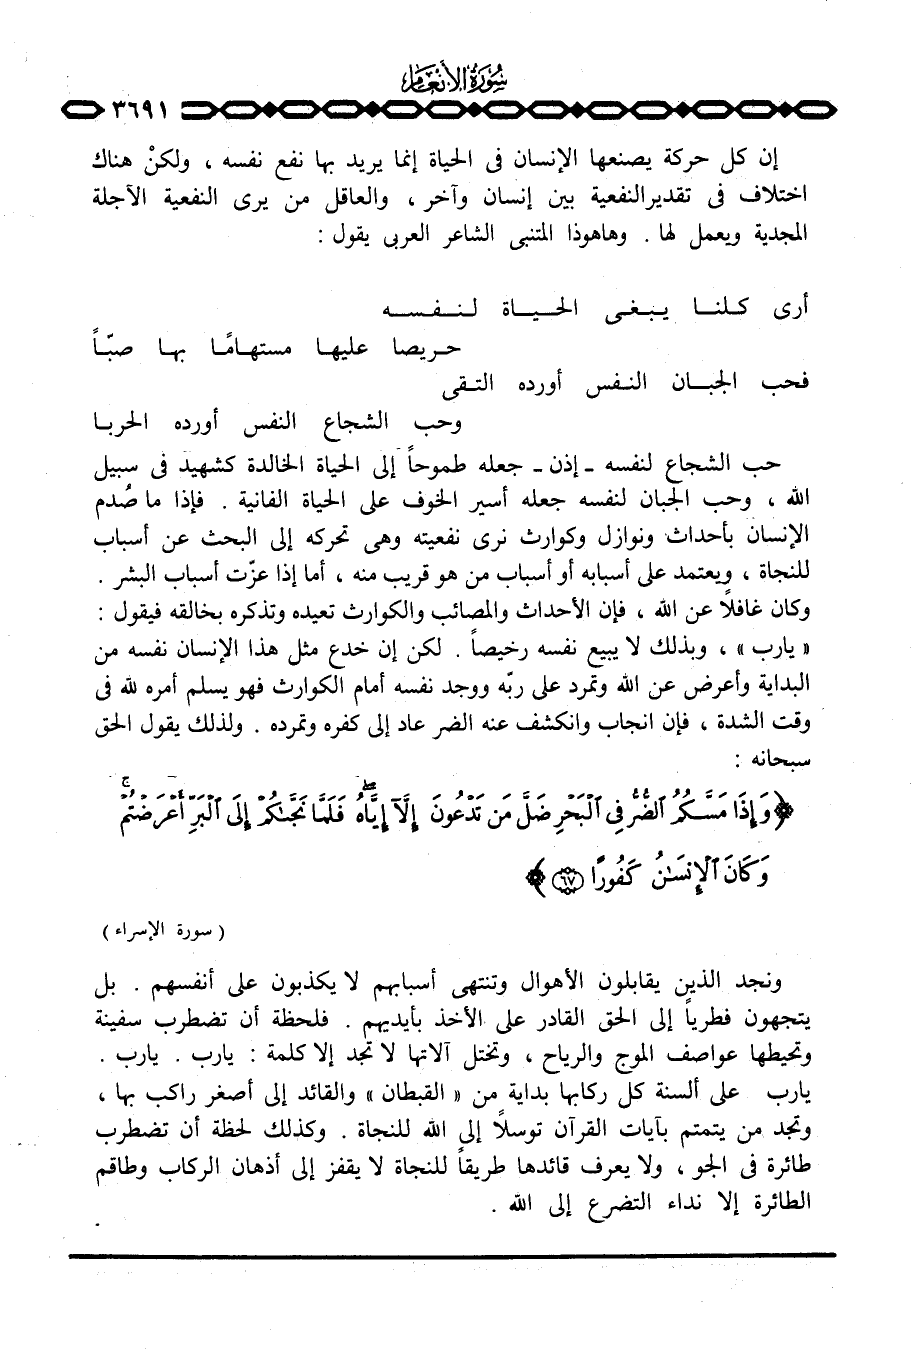 سُورَةُ الأَنْعَامِ
٣٦٩١
إن كل حركة يصنعها الإنسان فى الحياة إنما يريد بها نفع نفسه ، ولكنْ هناك
اختلاف فى تقديرالنفعية بين إنسان وآخر ، والعاقل من يرى النفعية الآجلة
المجدية ويعمل لها . وهاهوذا المتنبى الشاعر العربى يقول :
أرى كلنا يبغى الحياة لنفسه
حريصا عليها مستهامًا بها صبّاً
فحب الجبان النفس أورده التقى
وحب الشجاع النفس أورده الحربا
حب الشجاع لنفسه - إذن - جعله طموحاً إلى الحياة الخالدة كشهيد فى سبيل
الله ، وحب الجبان لنفسه جعله أسير الخوف على الحياة الفانية . فإذا ما صُدم
الإنسان بأحداث ونوازل وكوارث نرى نفعيته وهى تحركه إلى البحث عن أسباب
للنجاة ، ويعتمد على أسبابه أو أسباب من هو قريب منه ، أما إذا عزّت أسباب البشر .
وكان غافلاً عن الله ، فإن الأحداث والمصائب والكوارث تعيده وتذكره بخالقه فيقول :
« يارب » ، وبذلك لا يبيع نفسه رخيصاً . لكن إن خدع مثل هذا الإنسان نفسه من
البداية وأعرض عن الله وتمرد على ربّه ووجد نفسه أمام الكوارث فهو يسلم أمره لله فى
وقت الشدة ، فإن انجاب وانكشف عنه الضر عاد إلى كفره وتمرده . ولذلك يقول الحق
سبحانه :
﴿ وَإِذَا مَسَّكُمُ ٱلضُّرُّ فِى ٱلْبَحْرِ ضَلَّ مَن تَدْعُونَ إِلَّآ إِيَّاهُ ۖ فَلَمَّا نَجَّىٰكُمْ إِلَى ٱلْبَرِّ أَعْرَضْتُمْ ۚ
وَكَانَ ٱلْإِنسَـٰنُ كَفُورًا ٦٧ ﴾
( سورة الإسراء )
ونجد الذين يقابلون الأهوال وتنتهى أسبابهم لا يكذبون على أنفسهم . بل
يتجهون فطرياً إلى الحق القادر على الأخذ بأيديهم . فلحظة أن تضطرب سفينة
وتحيطها عواصف الموج والرياح ، وتختل آلاتها لا تجد إلا كلمة : يارب . يارب .
يارب على ألسنة كل ركابها بداية من « القبطان » والقائد إلى أصغر راكب بها ،
وتجد من يتمتم بآيات القرآن توسلاً إلى الله للنجاة . وكذلك لحظة أن تضطرب
طائرة فى الجو ، ولا يعرف قائدها طريقاً للنجاة لا يقفز إلى أذهان الركاب وطاقم
الطائرة إلا نداء التضرع إلى الله .